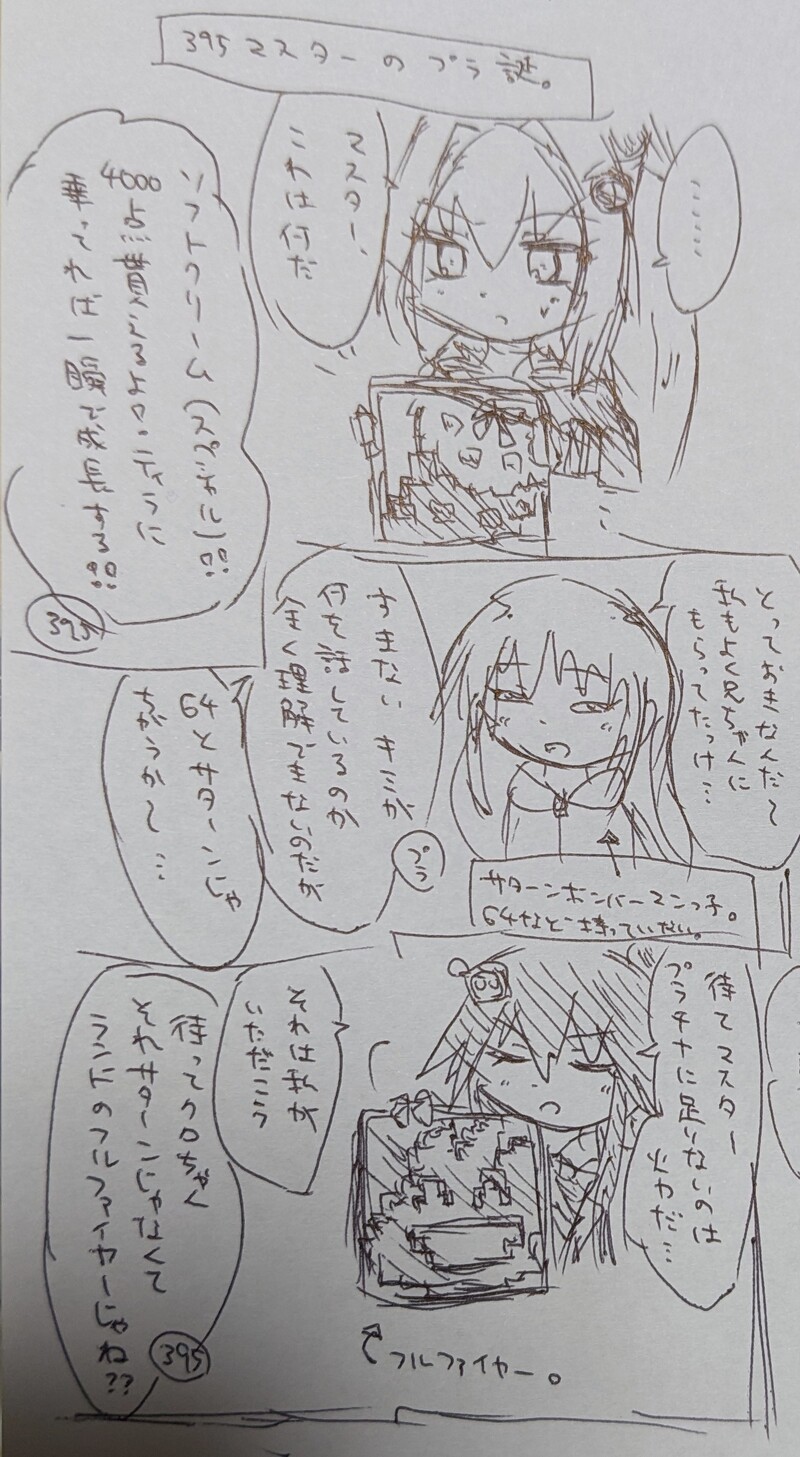 395マスターのプラ謎。
………
マスター、
これは何だ
ソフトクリーム(スペシャル)!!
4000点貰えるよ。ティラに
乗ってれば一瞬で成長する!!
395
とっておきなんだ〜
私もよく兄ちゃんに
もらってたっけ…
すまない キミが
何を話しているのか
全く理解できないのだが
プラ
サターンボンバーマンっ子。
64など持っていない。
64とサターンじゃ
ちがうか〜…
待てマスター
プラチナに足りないのは
火力だ…
それは私が
いただこう
待ってクロちゃん
それサターンじゃなくて
ランドのフルファイヤーじゃね??
395
フルファイヤー。